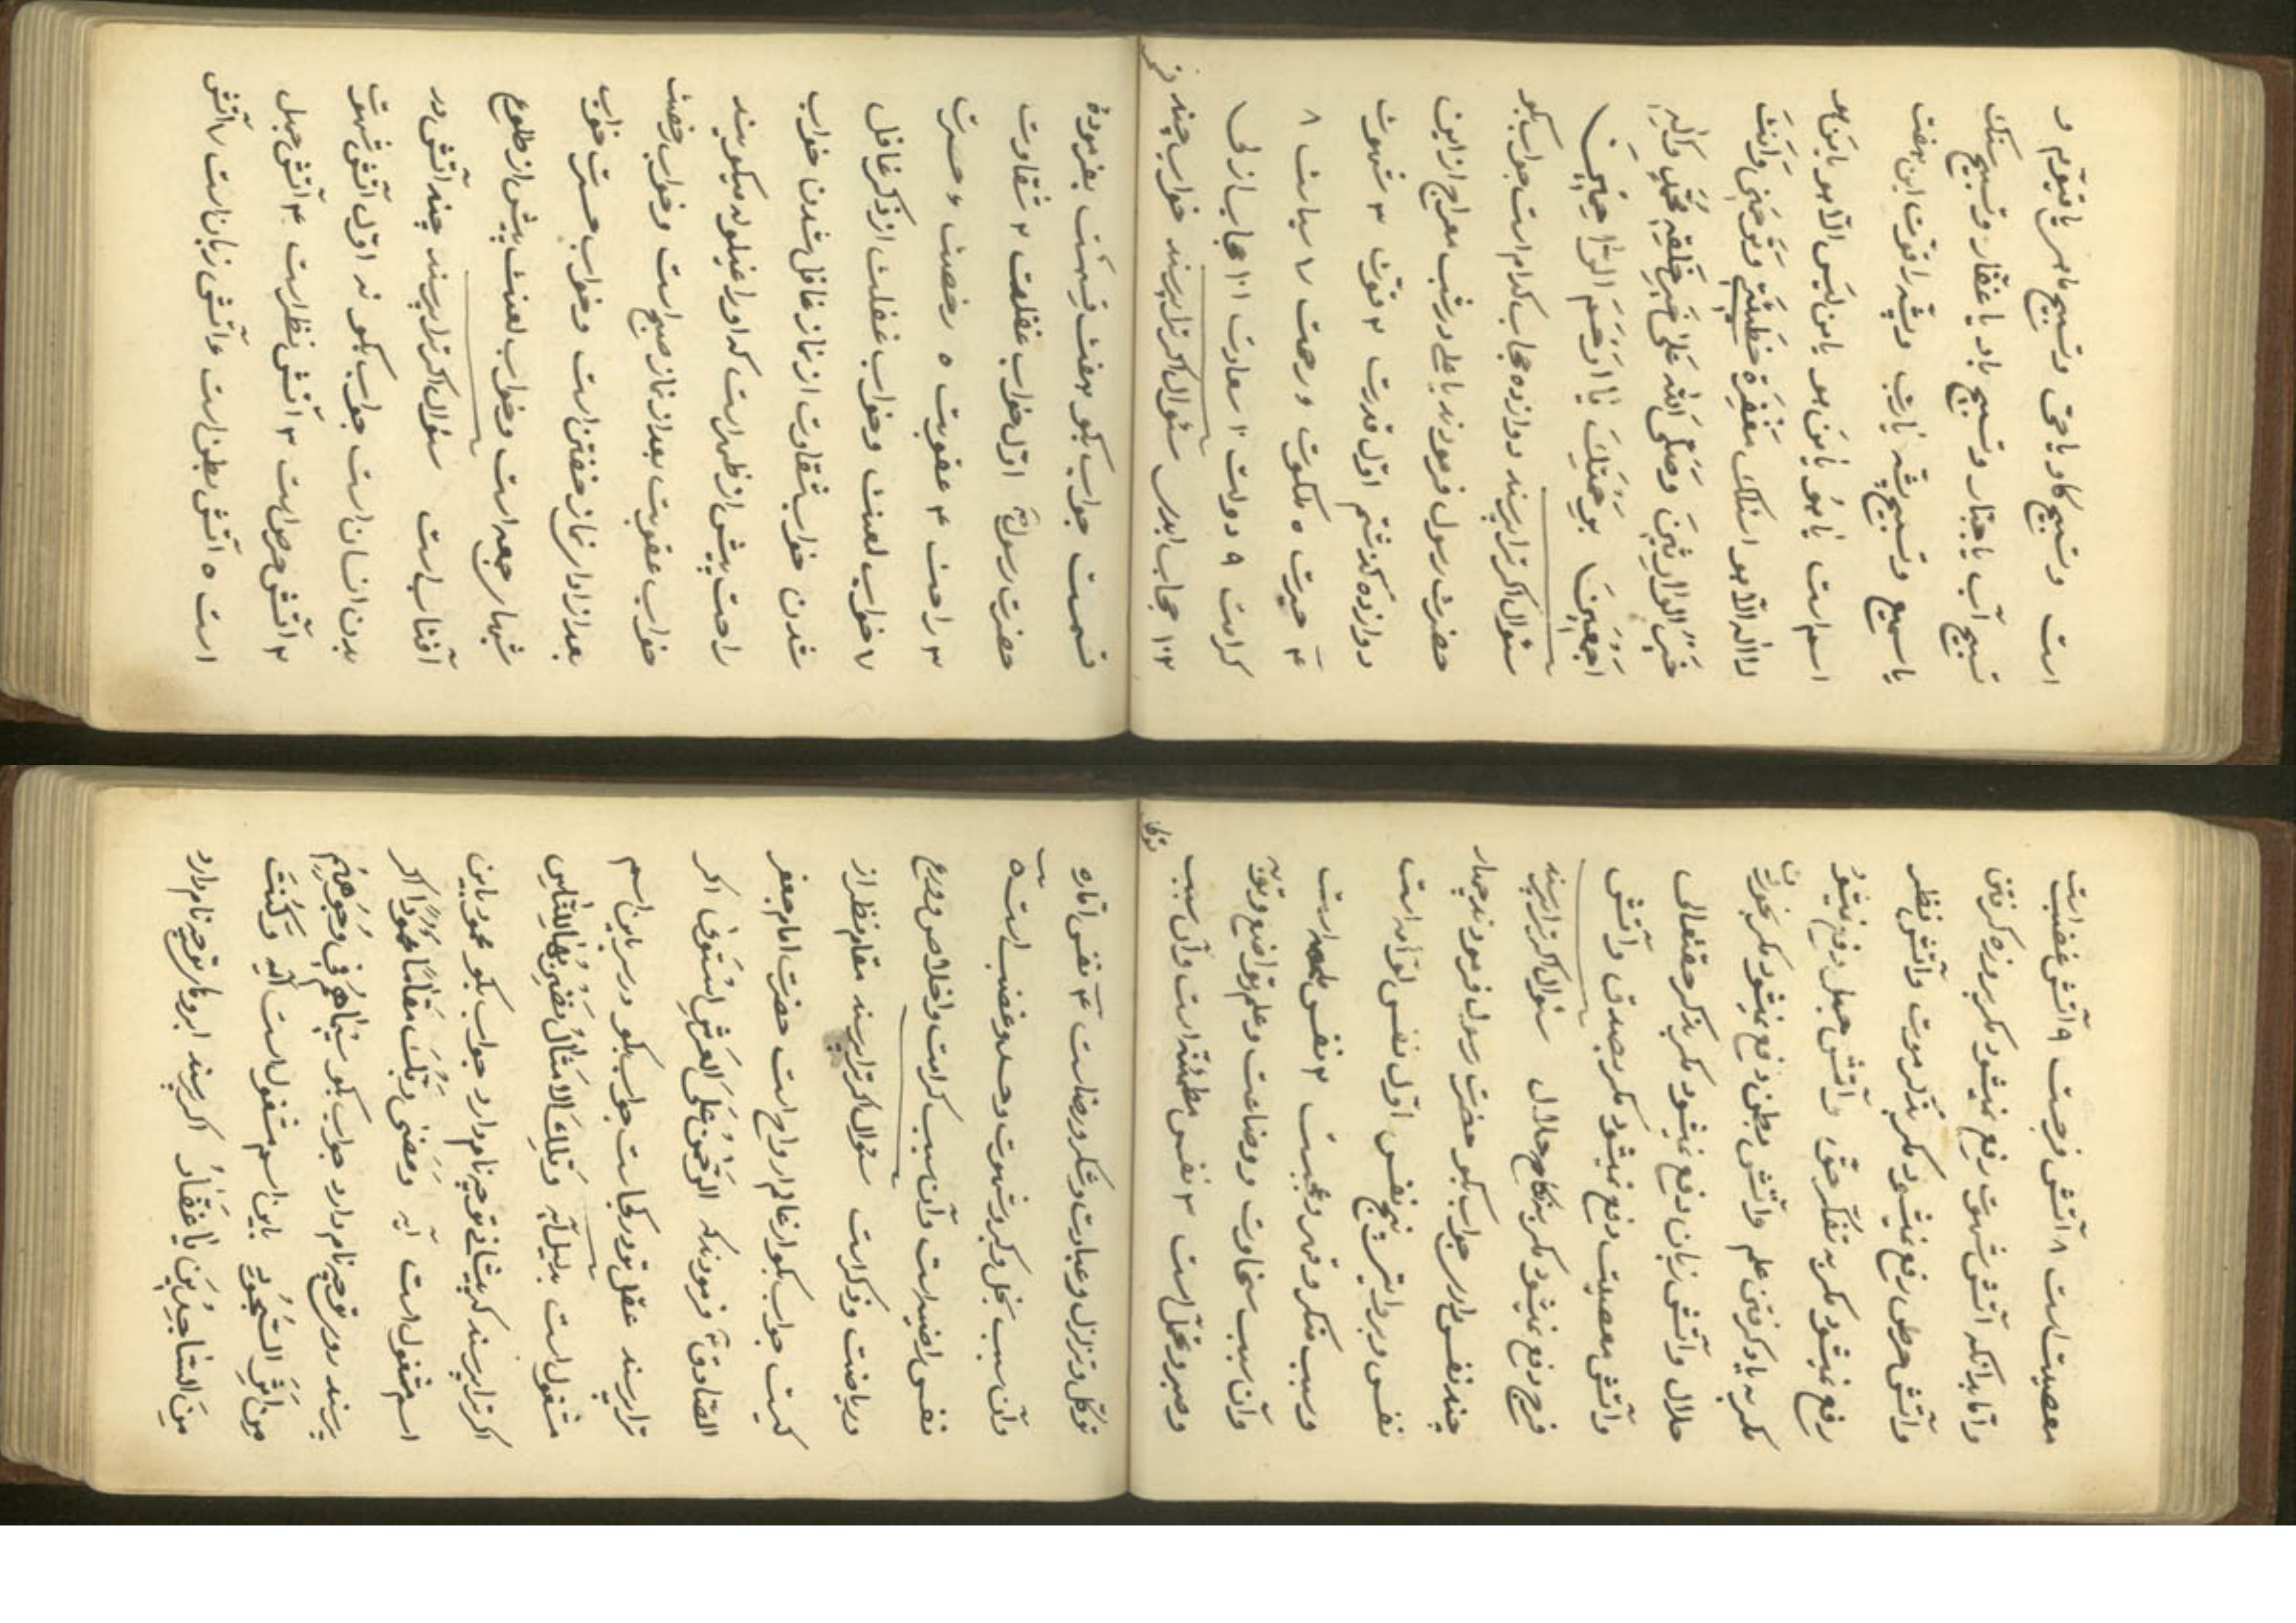 است وتسبیح کاو یاحی وتسبیح ماهی یاقیوم و
تسبیح آب یاجبار وتسبیح باد یاغفار وتسبیح سنک
یاسمیع وتسبیح پشه یارب وپشه را قوت این هفت
اسم است یاهو یامن هو یامن لیس الا هو یامن هو
لااله الا هو اسئلک مغفرة خطیئتی وترحمنی وانت
خیر الوارثین وصلی الله علی خیر خلقه محمد وآله
اجمعین برحمتک یا ارحم الراحمین
سئوال اکر ترا پرسند دوازده حجاب کدام است جواب بکو
حضرت رسول فرمودند یاعلی در شب معراج از این
دوازده کذشتم اول قدرت ۲ قوت ۳ شهوت
۴ حیرت ۵ ملکوت و رحمت ۷ سیاست ۸
کرامت ۹ دولت ۱۰ سعادت ۱۱ حجاب ازلی
۱۲ حجاب ابدی سئوال اکر ترا پرسند خواب چند
قسمت جواب بکو هفت قسمت بفرموده
حضرت رسول اول خواب غفلت ۲ شقاوت
۳ راحت ۴ عقوبت ۵ رخصت ۶ حسرت
۷ خواب لعنت وخواب غفلت از ذکر غافل
شدن خواب شقاوت از نماز غافل شدن خواب
راحت پیش از ظهر است که اورا قیلوله میکویند
خواب عقوبت بعد از نماز صبح است وخواب رخصت
بعد از ادای نماز خفتن است وخواب حسرت خواب
شبهای جمعه است وخواب لعنت پیش از طلوع
آفتاب است سئوال اکر ترا پرسند چند آتش در
بدن انسان است جواب بکو نه اول آتش شهوت
۲ آتش حرص است ۳ آتش نظر است ۴ آتش جهل
است ۵ آتش بطن است ۶ آتش زبان است ۷ آتش
معصیت است ۸ آتش فرجست ۹ آتش غضب است
واما بدانکه آتش شهوت رفع نمیشود مکر بروزه کرفتن
وآتش حرص رفع نمیشود مکر بذکر موت وآتش نظر
رفع نمیشود مکر به تفکر حق وآتش جهل رفع نمیشود
مکر به یاد کرفتن علم وآتش بطن دفع نمیشود مکر بخوردن
حلال وآتش زبان دفع نمیشود مکر بذکر حقتعالی
وآتش معصیت دفع نمیشود مکر بصدق وآتش
فرج دفع نمیشود مکر بنکاح حلال سئوال اکر ترا پرسند
چند نفس داری جواب بکو حضرت رسول فرمودند چهار
نفس اول نفس لوامه است
وسبب منکر وقهر وعجبست ۲ نفس ملهمه است
وآن سبب سخاوت وقناعت وعلم وتواضع وتوبه
وصبر وتحمل است ۳ نفس مطمئنه است وآن سبب
توکل
توکل وتزلل وعبادت وشکر ورضاست ۴ نفس اماره
وآن سبب بخل وکبر وشهوت وحسد وغضب است ۵
نفس راضیه است وآن سبب کرامت واخلاص وورع
وریاضت وذکر است سئوال اکر ترا پرسند مقام نظر از
کیست جواب بکو از عالم ارواح است حضرت امام جعفر
الصادق فرمودند که الرحمن علی العرش استوی اکر
ترا پرسند عقل تو در کجاست جواب بکو در سر باین اسم
مشغول است بدلیل آیه وتلک الامثال نضربها للناس
اکر ترا پرسند که پیشانی تو چه نام دارد جواب بکو محمود باین
اسم مشغول است آیه ربک مقاما محمودا اکر
پرسند روی تو چه نام دارد جواب بکو سیماهم فی وجوههم
من اثر السجود باین اسم مشغول است آیه وکنت
من الساجدین یا غفار اکر پرسند ابروهای تو چه نام دارد